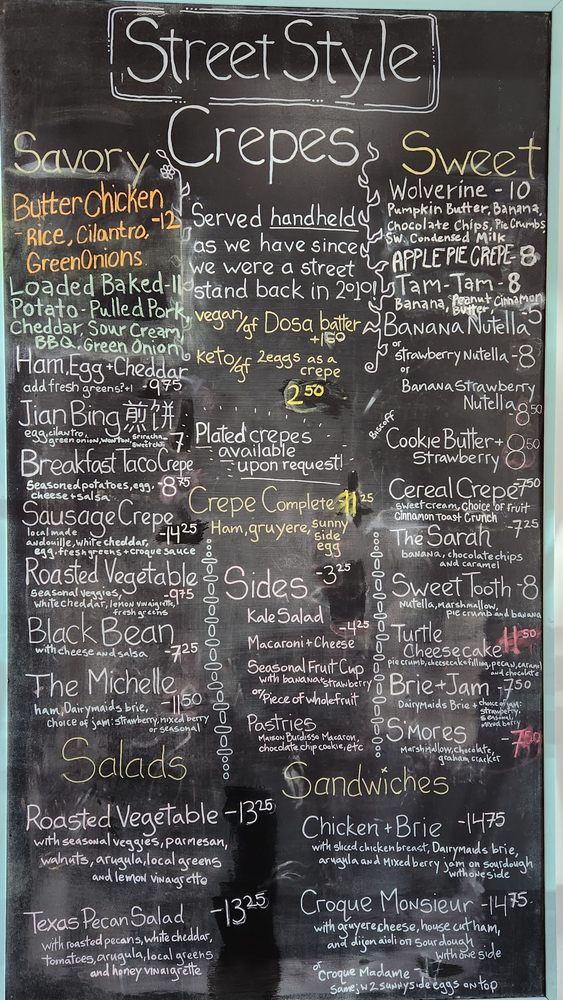 Street Style
Crepes
Savory
Butter Chicken
- Rice, Cilantro, -12
Green Onions
Loaded Baked -11
Potato - Pulled Pork,
Cheddar, Sour Cream
BBQ, Green Onion
Ham, Egg + Cheddar
add fresh greens? +1 -9.75
Jian Bing 煎饼
egg, cilantro, green onion, wonton, sriracha, -7
Breakfast Taco Crepe
Seasoned potatoes, egg, -8.75
cheese + salsa
Sausage Crepe
local made -14.25
andouille, white cheddar,
egg, fresh greens + croque sauce
Roasted Vegetable
seasonal veggies, -9.75
white cheddar, lemon vinaigrette,
fresh greens
Black Bean
with cheese and salsa -7.25
The Michelle
ham, Dairymaids brie, -11.50
choice of jam: strawberry, mixed berry
or seasonal
Served handheld
as we have since
we were a street
stand back in 2010!
vegan/gf Dosa batter
keto/gf 2 eggs as a
crepe
2.50
Plated crepes
available
upon request!
Crepe Complete 11.25
Ham, gruyere, sunny
side
egg
Sides -3.25
Kale Salad
-4.25
Macaroni + Cheese
Seasonal Fruit Cup
with banana + strawberry
or Piece of whole fruit
Pastries
Maison Burdisso Macaron,
chocolate chip cookie, etc
Sweet
Wolverine - 10
Pumpkin Butter, Banana,
Chocolate Chips, Pie Crumbs
SW. Condensed Milk
APPLE PIE CREPE - 8
Tam-Tam - 8
Banana, Peanut Butter, Cinnamon
Banana Nutella -5
or
strawberry Nutella - 8
or
Banana Strawberry
Nutella
-8.50
Biscoff
Cookie Butter +
Strawberry 8.50
Cereal Crepe 7.50
sweet cream, choice of fruit
Cinnamon Toast Crunch
-7.25
The Sarah
banana, chocolate chips
and caramel
Sweet Tooth - 8
Nutella, marshmallow,
pie crumb and banana
Turtle
Cheesecake 11.50
pie crumb, cheesecake filling, pecan, caramel
and chocolate
Brie + Jam - 7.50
Dairymaids Brie + choice of jam:
strawberry,
seasonal,
mixed berry
S'mores
-7.50
Marshmallow, chocolate,
graham cracker
Salads
Roasted Vegetable -13.25
with seasonal veggies, parmesan,
walnuts, arugula, local greens
and lemon vinaigrette
Texas Pecan Salad -13.25
with roasted pecans, white cheddar,
tomatoes, arugula, local greens
and honey vinaigrette
Sandwiches
Chicken + Brie -14.75
with sliced chicken breast, Dairymaids brie,
arugula and Mixed berry jam on sourdough
with one side
Croque Monsieur -14.75
with gruyere cheese, house cut ham,
and dijon aioli on sourdough
with one side
or Croque Madame -
same, w 2 sunnyside eggs on top